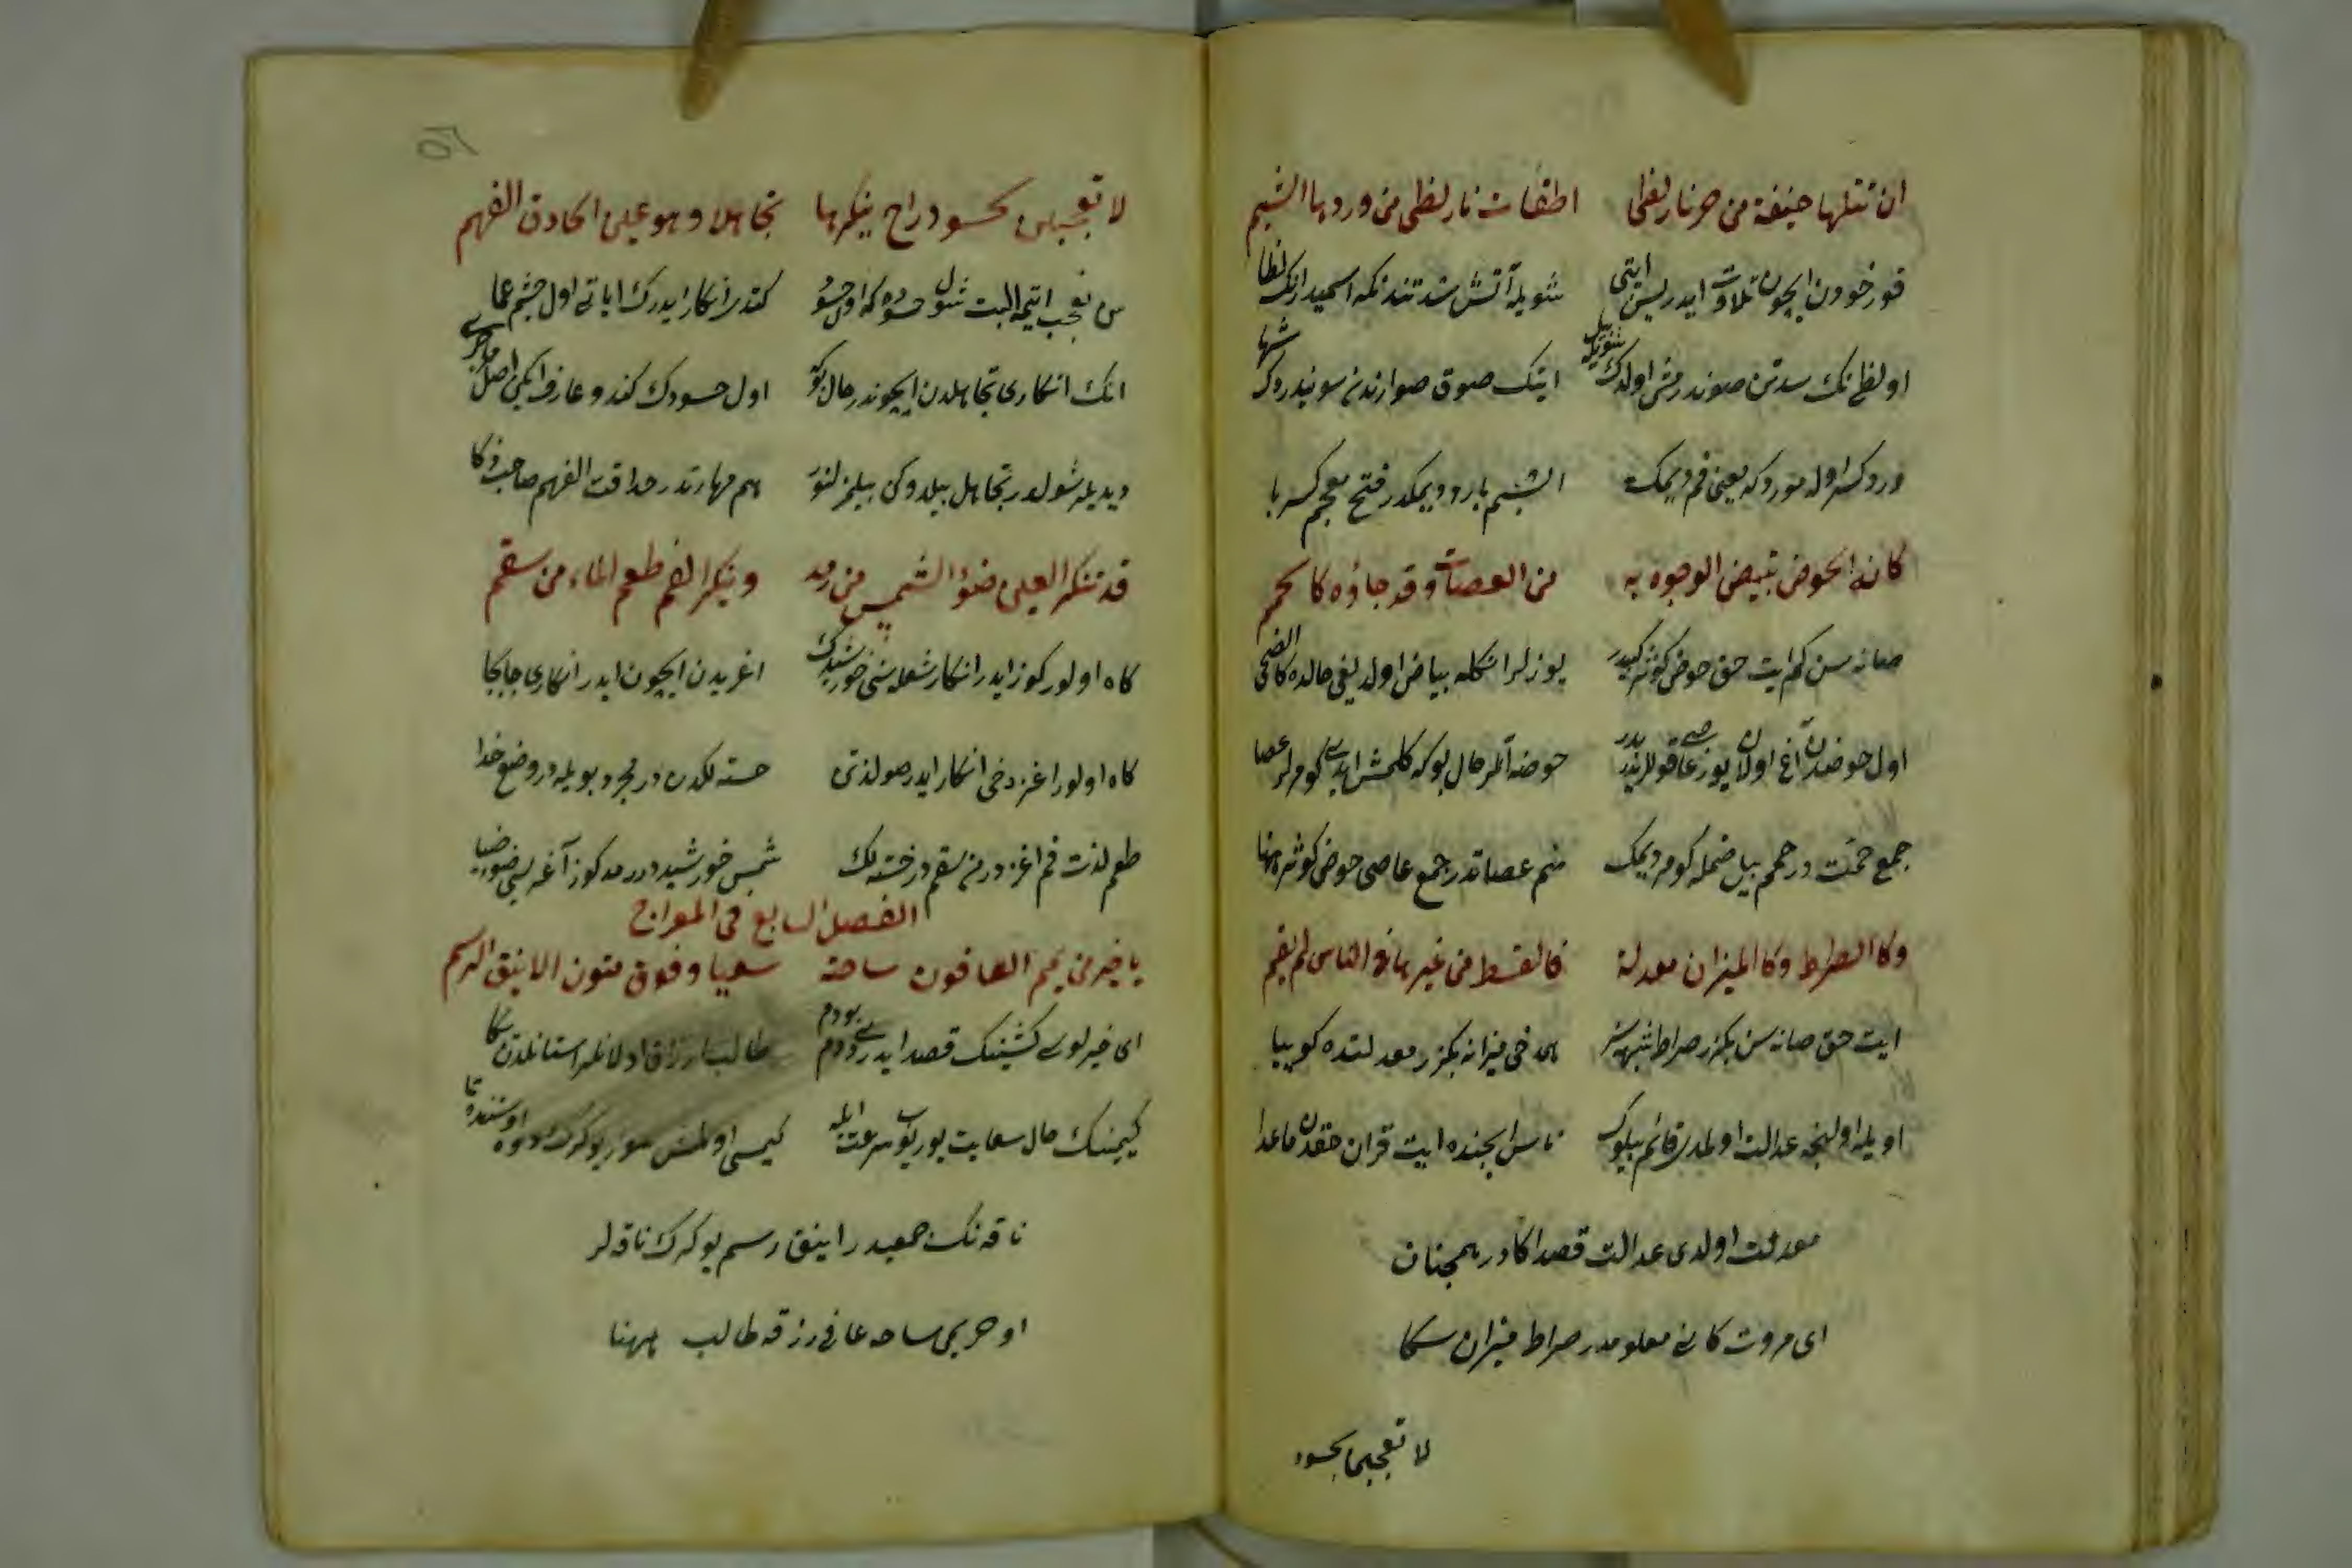 ان تتلها خيفة من حر نار لظى اطفات نار لظى من وردها الشبم
قورخودن ايچون تلاوت ايدرسن ايتى شويله آتش شدتندنكه اسميدر انك لظا
اول لظانك سدتن صوندرمش اولدك شويله بيل ايتك صوق صولرندن سوندردك
وردكه اوله موردكه يعنى فم ديمك الشبم بارد ديمكدر فتح معجم كسر با
كانه الحوض تبيض الوجوه به من العصات وقد جاؤه كالحمم
صانه سن كم ايت حق حوض كوثر كبيدر يوزلر انكله بياض اولديغى حالده كالضحى
اول حوضدن آغ اولان يوز عاقوللرندر حوضه آنلر حال بوكه كلمش ايدى كومرلر عصا
جمع حمت در حمم بيل ضمله كومر ديمك هم عصاتدر جمع عاصى حوض كوثر ههنا
وكالصراط وكالميزان معدلة فالقسط من غيرها فى الناس لم يقم
ايت حق صانه سن بكزر صراط شبهه سز هم دخى ميزانه بكزر معدلتده كوييا
اويله اولنجه عدالت اولمدى قائم بيلوك ناس ايچنده ايت قران حقدن ماعدا
معدلت اولدى عدالت قصدا كادر همچنان
اى مروت كانى معلومدر صراط ميزان سكا
لا تعجبن لحسود
لا تعجبن لحسود راح ينكرها تجاهلا وهو عين الحاذق الفهم
سن تعجب ايتمه البت شول حسوده كه اول حسود كندر انكار ايدرك اياتى اول چشم عما
انك انكارى تجاهلدن ايچوندر حال بو اول حسودك كندو عارف ايكن اصل ماجرا
ديديله شولدر تجاهل بيلدوكن بيلمزلنور هم مهارتدر حذاقت الفهم صاحب ذكا
قد تنكر العين ضوء الشمس من رمد وينكر الفم طعم الماء من سقم
كاه اولور كوز ايدر انكار شعله سنى خورشيدك اغريدن ايچون ايدر انكارى جابجا
كاه اولور اغز دخى انكار ايدر صو لذتن خسته لكدن در مجرد بويله در وضع خدا
طعم لذت فم اغزدر من سقم در خسته لك شمس خورشيد در رمد كوز آغريسى ضودر ضيا
الفصل السابع فى المعراج
يا خير من يمم العافون ساحته سعيا وفوق متون الاينق الرسم
اى خيرلوسى كشينك قصد ايدر طالب ارزاق اولانلر استانلدن سكا
كيمينك حال سعايت يورييوب سرعت ايله كيمسى اولمش سوز يوكرك دوه اوستنده تا
ناقه نك جمعيدر اينق رسم يوكرك ناقه لر
او حريمى ساحه عافى رزقه طالب ههنا